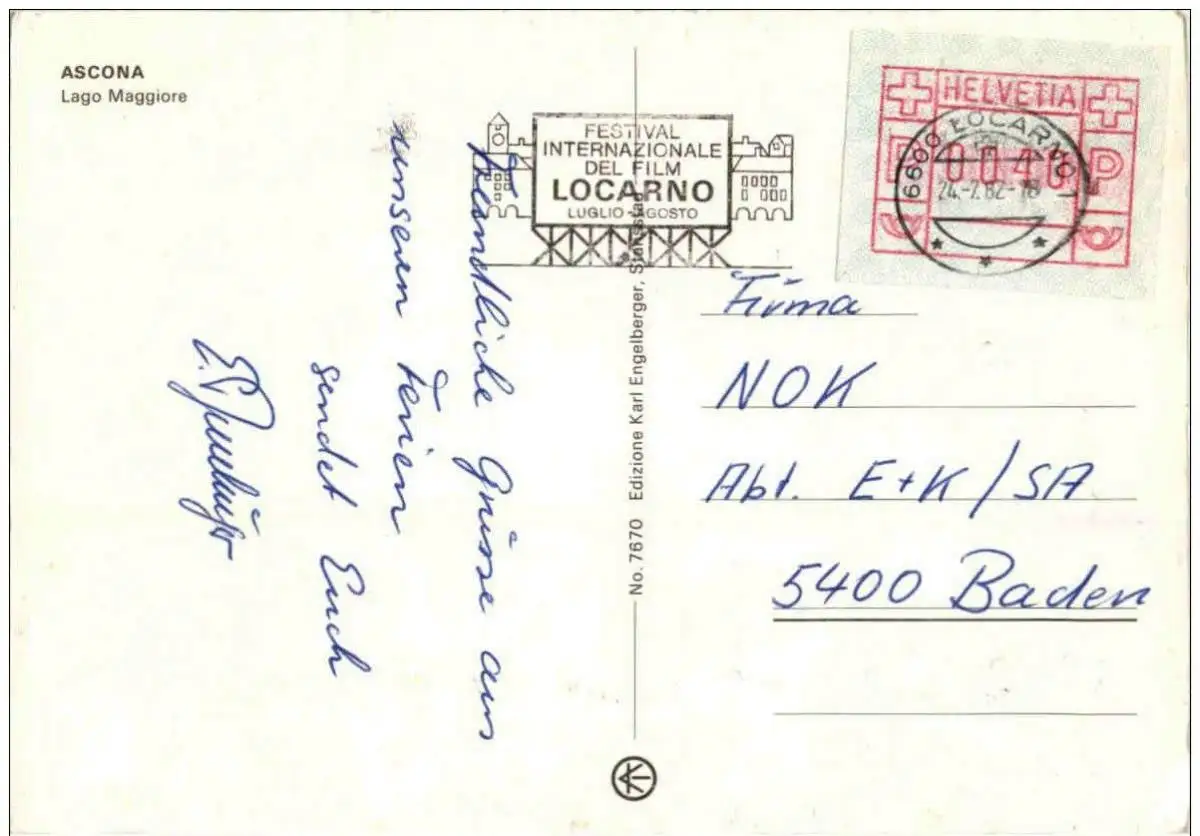 ASCONA
Lago Maggiore
FESTIVAL
INTERNAZIONALE
DEL FILM
LOCARNO
LUGLIO - AGOSTO
HELVETIA
P 0040 P
6600 LOCARNO 1
24.-7.82-18
Freundliche Grüsse aus
unseren Ferien
sendet Euch
No. 7670 Edizione Karl Engelberger, Stansstad
Firma
NOK
Abt. E+K/SA
5400 Baden